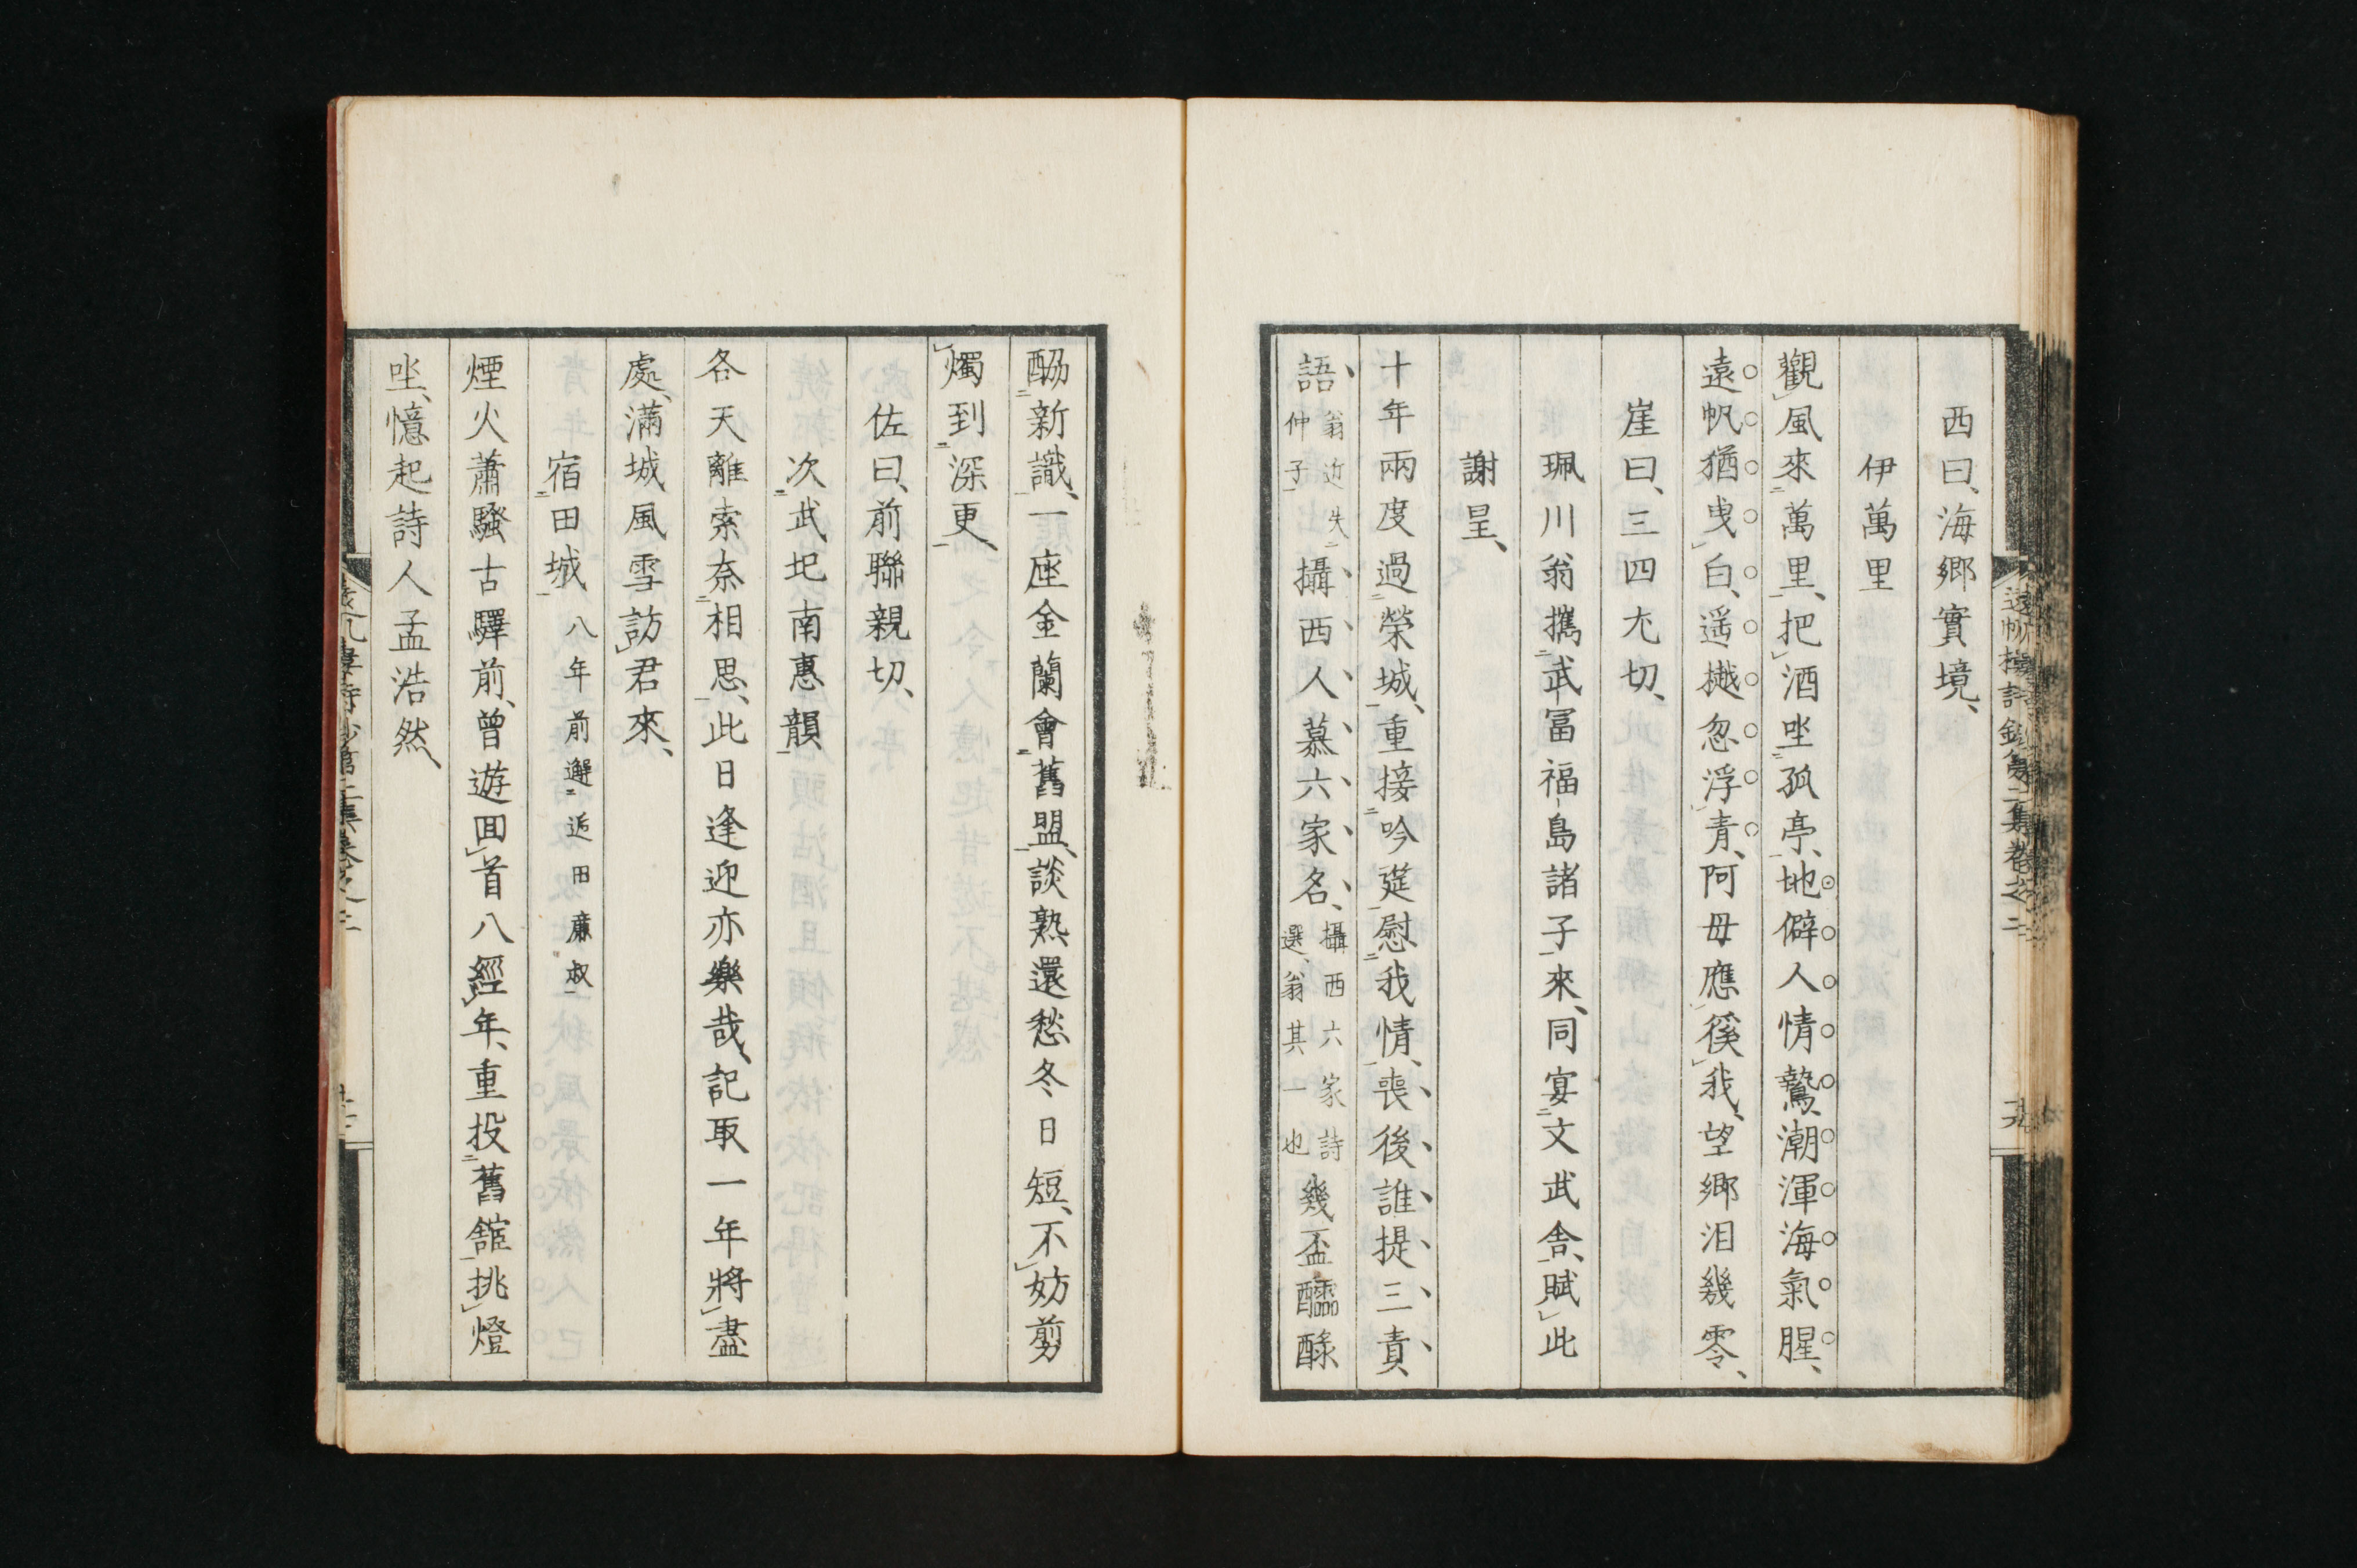 西曰、海鄉實境、
伊萬里
觀風來萬里、把酒坐孤亭、地僻人情鷙、潮渾海氣腥、
遠帆猶曳白、遥樾忽浮青、阿母應徯我、望鄉泪幾零、
崖曰、三四尤切、
珮川翁攜武冨福島諸子來、同宴文武舍、賦此
謝呈、
十年兩度過榮城、重接吟筵慰我情、喪後誰提三責
語、翁近失仲子攝西人慕六家名、攝西六家詩選、翁其一也幾盃醽醁
酬新識、一座金蘭會舊盟、談熟還愁冬日短、不妨剪
燭到深更、
佐曰、前聯親切、
次武圯南惠韻
各天離索奈相思、此日逢迎亦樂哉、記取一年將盡
處、滿城風雪訪君來、
宿田城八年前邂逅田廉叔
煙火蕭騷古驛前、曾遊回首八經年、重投舊舘挑燈
坐、憶起詩人孟浩然、